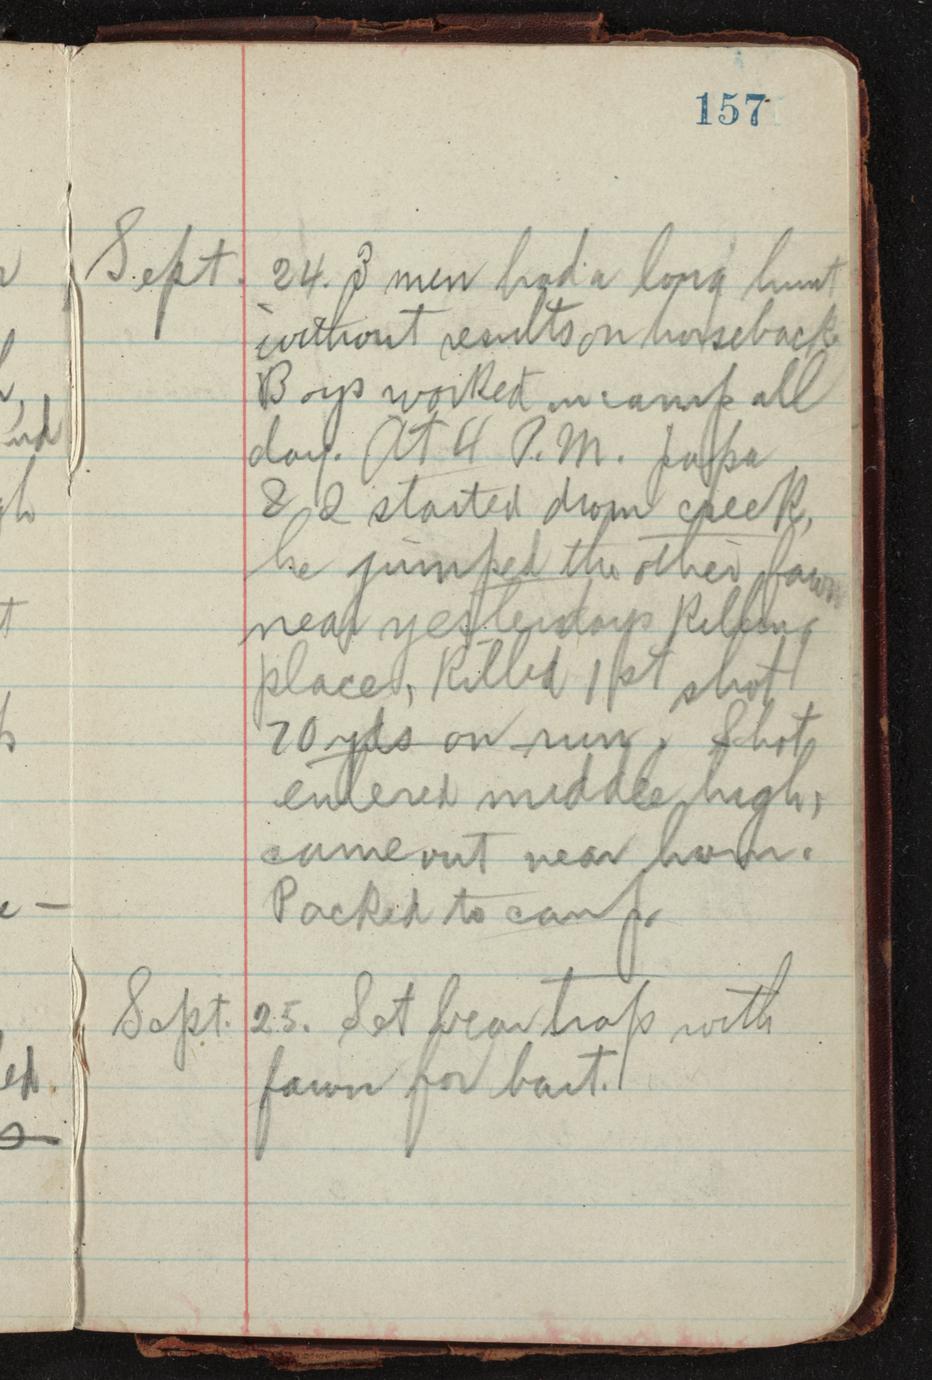 157
Sept. 24. 3 men had a long hunt
without results on horseback
Boys worked in camp all
day. At 4 P.M. papa
& I started down creek,
he jumped the other fawn
near yesterdays killing
place, killed 1st shot
70 yds on run. Shot
entered middle high,
came out near ham.
Packed to camp.
Sept. 25. Set bear trap with
fawn for bait.